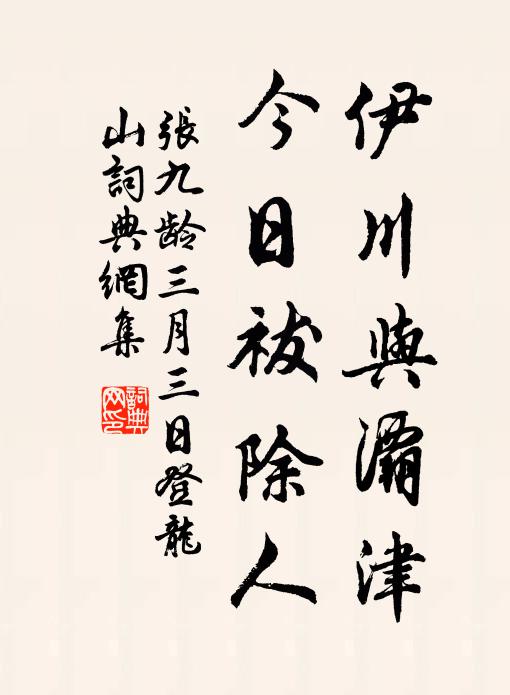 伊川與灞津
今日祓除人
張九龄三月三日登龍
山詞典網集
詞典网印